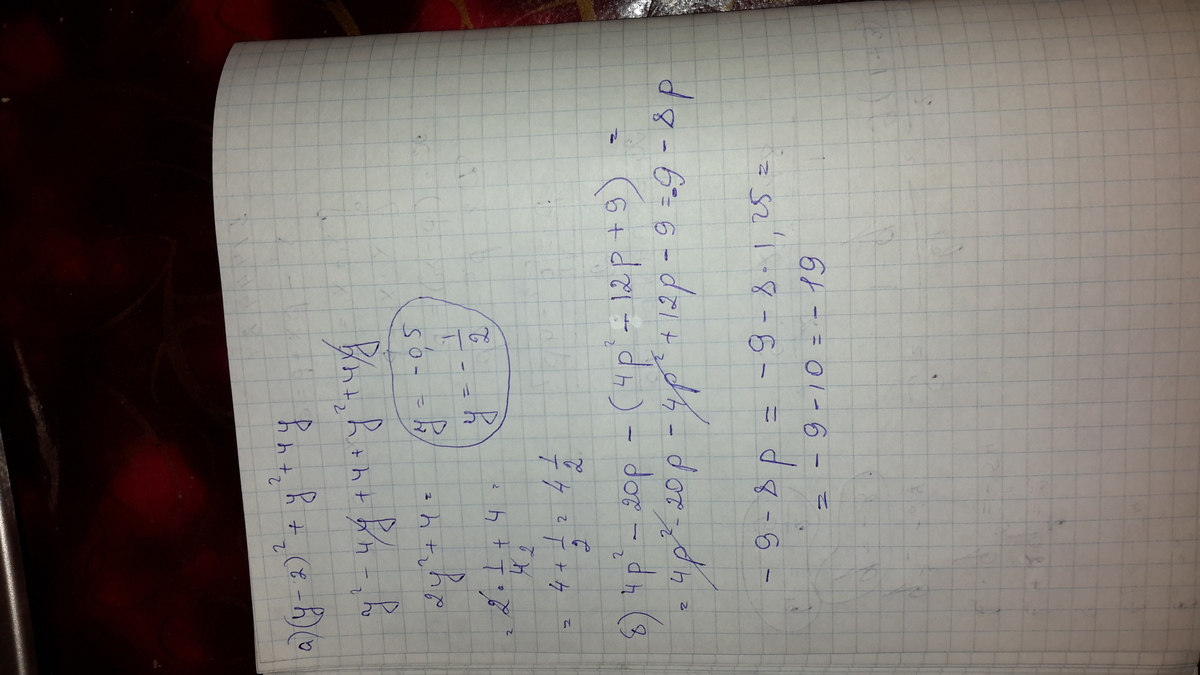 а) (y - 2)² + y² + 4y
y² - 4y + 4 + y² + 4y
2y² + 4 =
y = -0,5
y = - 1/2
= 2 · 1/4 + 4 =
2
= 4 + 1/2 = 4 1/2
б) 4p² - 20p - (4p² - 12p + 9) =
= 4p² - 20p - 4p² + 12p - 9 = -9 - 8p
- 9 - 8p = - 9 - 8 · 1,25 =
= - 9 - 10 = - 19